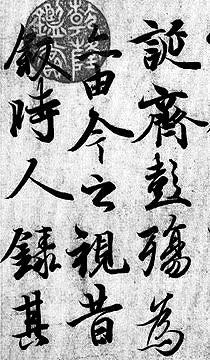 誕齊彭殤為
亦由今之視昔
叙時人錄其
乾隆
鑑賞